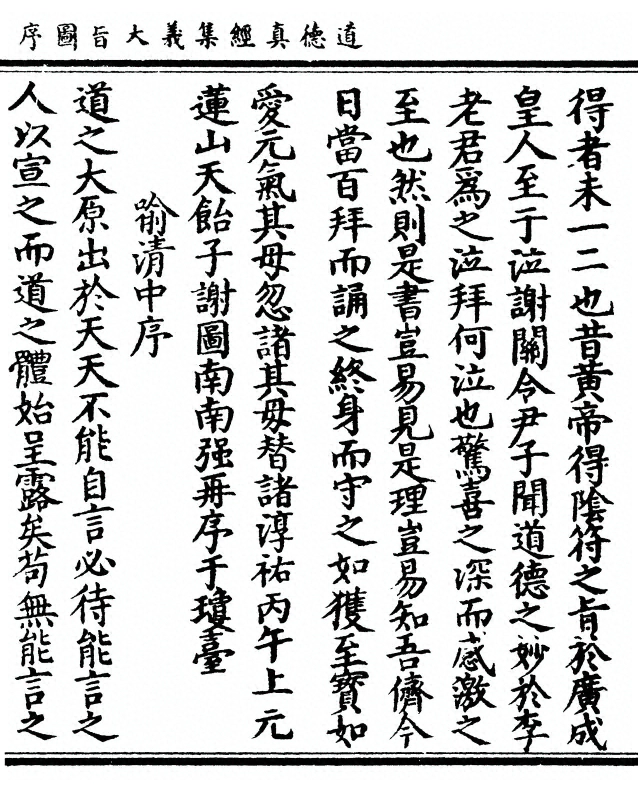 道德真經集義大旨圖序
得者未一二也昔黃帝得陰符之旨於廣成
皇人至于泣謝關令尹子聞道德之妙於李
老君爲之泣拜何泣也驚喜之深而感激之
至也然則是書豈易見是理豈易知吾儕今
日當百拜而誦之終身而守之如獲至寶如
愛元氣其毋忽諸其毋替諸淳祐丙午上元
蓮山天飴子謝圖南南强再序于瓊臺
喻清中序
道之大原出於天天不能自言必待能言之
人以宣之而道之體始呈露矣苟無能言之